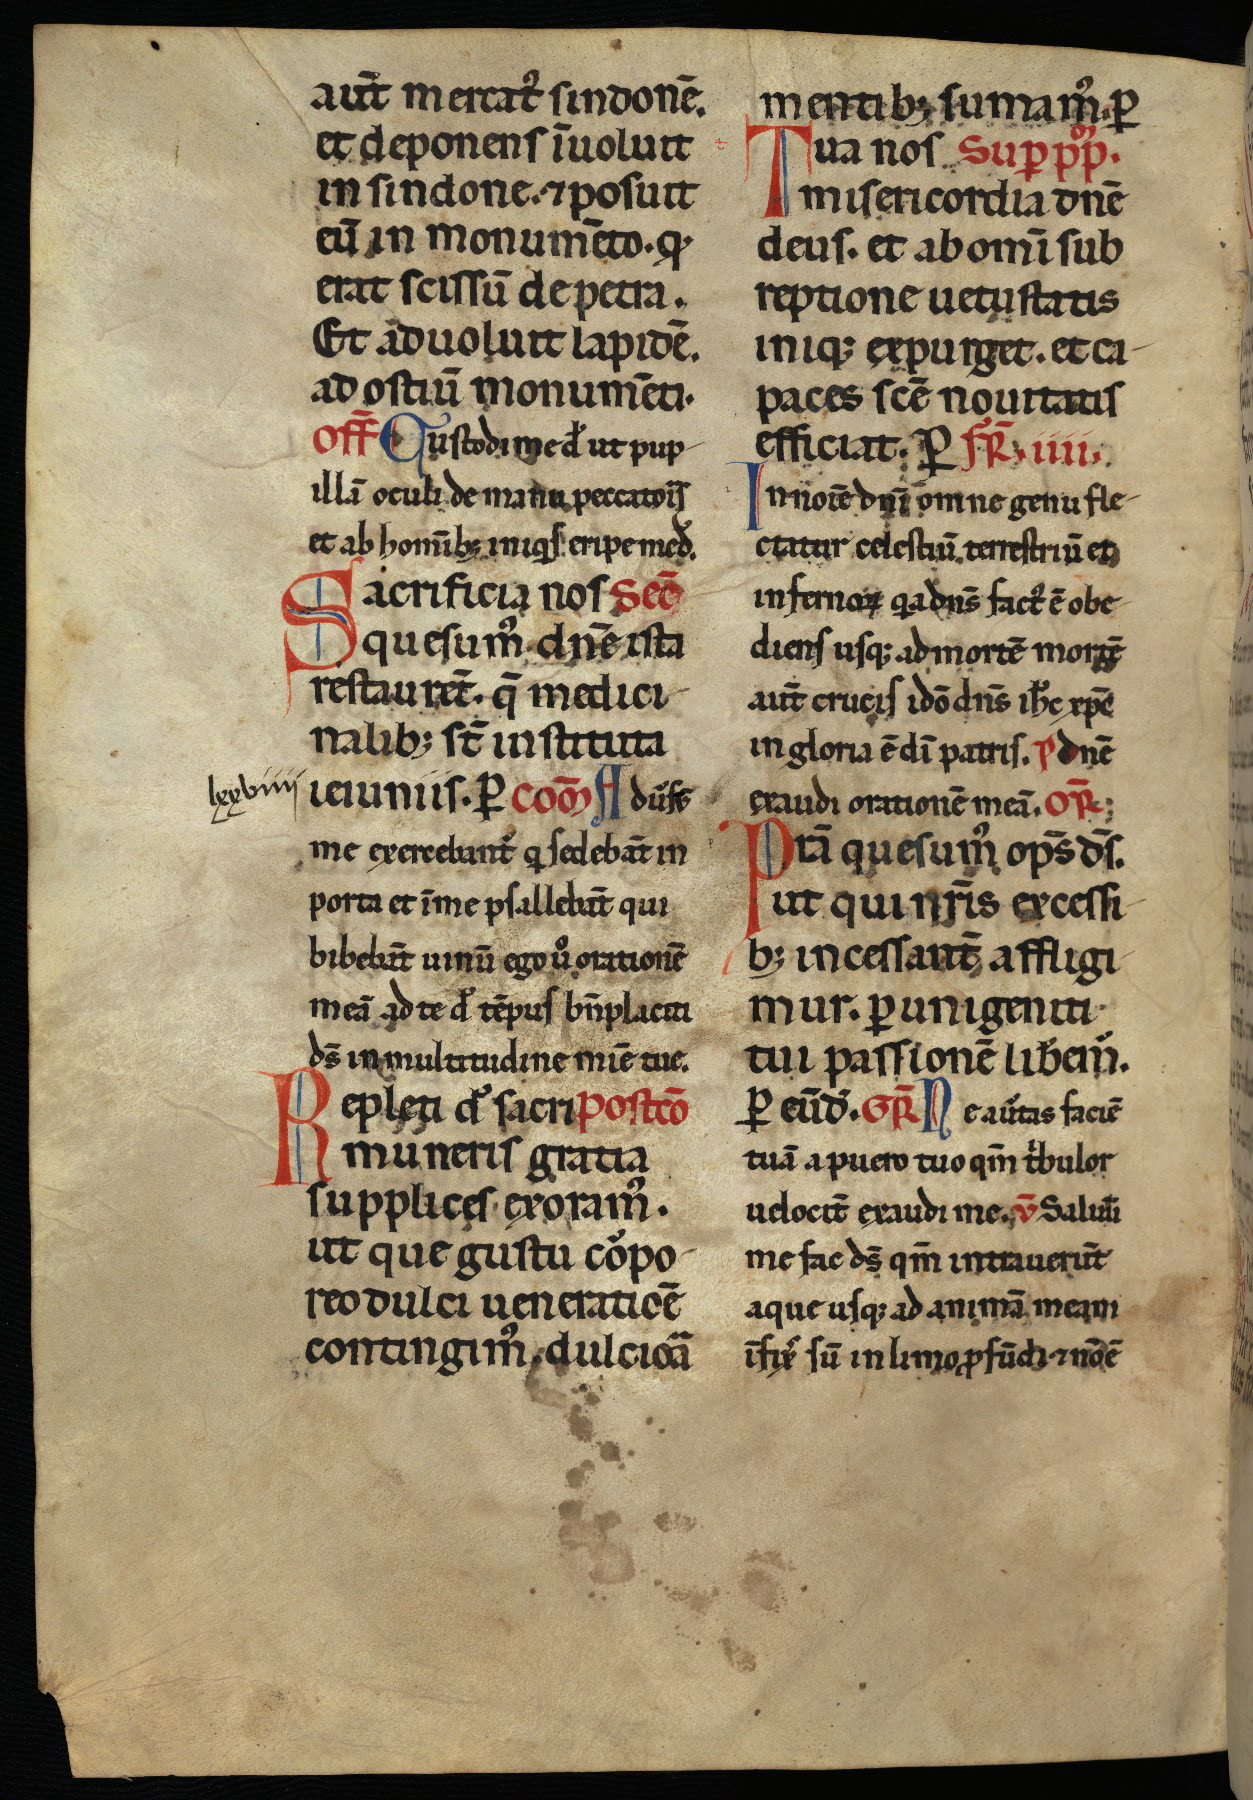 aut̄ mercat᷒ sindonē.
et deponens īuoluit
in sindone. ⁊ posuit
eū in monumēto. qͥ
erat scissū de petra.
Et aduoluit lapidē.
ad ostiū monumēti.
Off̄ Custodi me d᷒ ut pup-
illā oculi de manu peccatoris
et ab homīb; iniqͥs eripe me d᷒.
Sacrificia nos Sec̄
quesum᷒ dn̄e ista
restaurēt. q̄ medici-
nalib; st̄ instituta
lxxviiii
ieiuniis. ꝑ Com̄ Aduſ᷒
me exercebant᷒ qͥ sedebāt in
porta et ī me psallebāt qui
bibebāt uinū ego u᷒o orationē
meā ad te d᷒ tēpus bn̄placiti
ds̄ in multitudine mīe tue.
Repleti d᷒ sacri Postcō
muneris gratia
supplices exoram᷒.
ut que gustu co᷒po-
reo dulci ueneratiōe
contingim᷒. dulciorā
mentib; sumam᷒. ꝑ
Tua nos Sup pp̄p.
misericordia dn̄e
deus. et ab omī sub
reptione uetustatis
iniq; expurget. et ca-
paces sc̄e nouitatis
efficiat. ꝑ fr̄. iiii.
In noīe dn̄i omne genu fle-
ctatur celestiū terrestriū et
infernoꝝ qͥa dn̄s fact᷒ ē obe-
diens usq; ad mortē mortē
aut̄ crucis idō dn̄s ih᷒c xp̄c
in gloria ē dī patris. p̄ dn̄e
exaudi orationē meā. Or̄;
Prā quesum᷒ op̄s ds̄.
ut qui nr̄is excessi-
b; incessant᷒ affligi-
mur. ꝑ unigeniti
tui passionē lib᷒em᷒.
ꝑ eūd᷒. Gr̄ Ne au᷒tas faciē
tuā a puero tuo qm̄ tͥbulor
uelocit᷒ exaudi me. v̄ Saluū
me fac ds̄ qm̄ intrauerūt
aque usq; ad animā meam
īfix᷒ sū in limo ꝓfūdi ⁊ nō ē